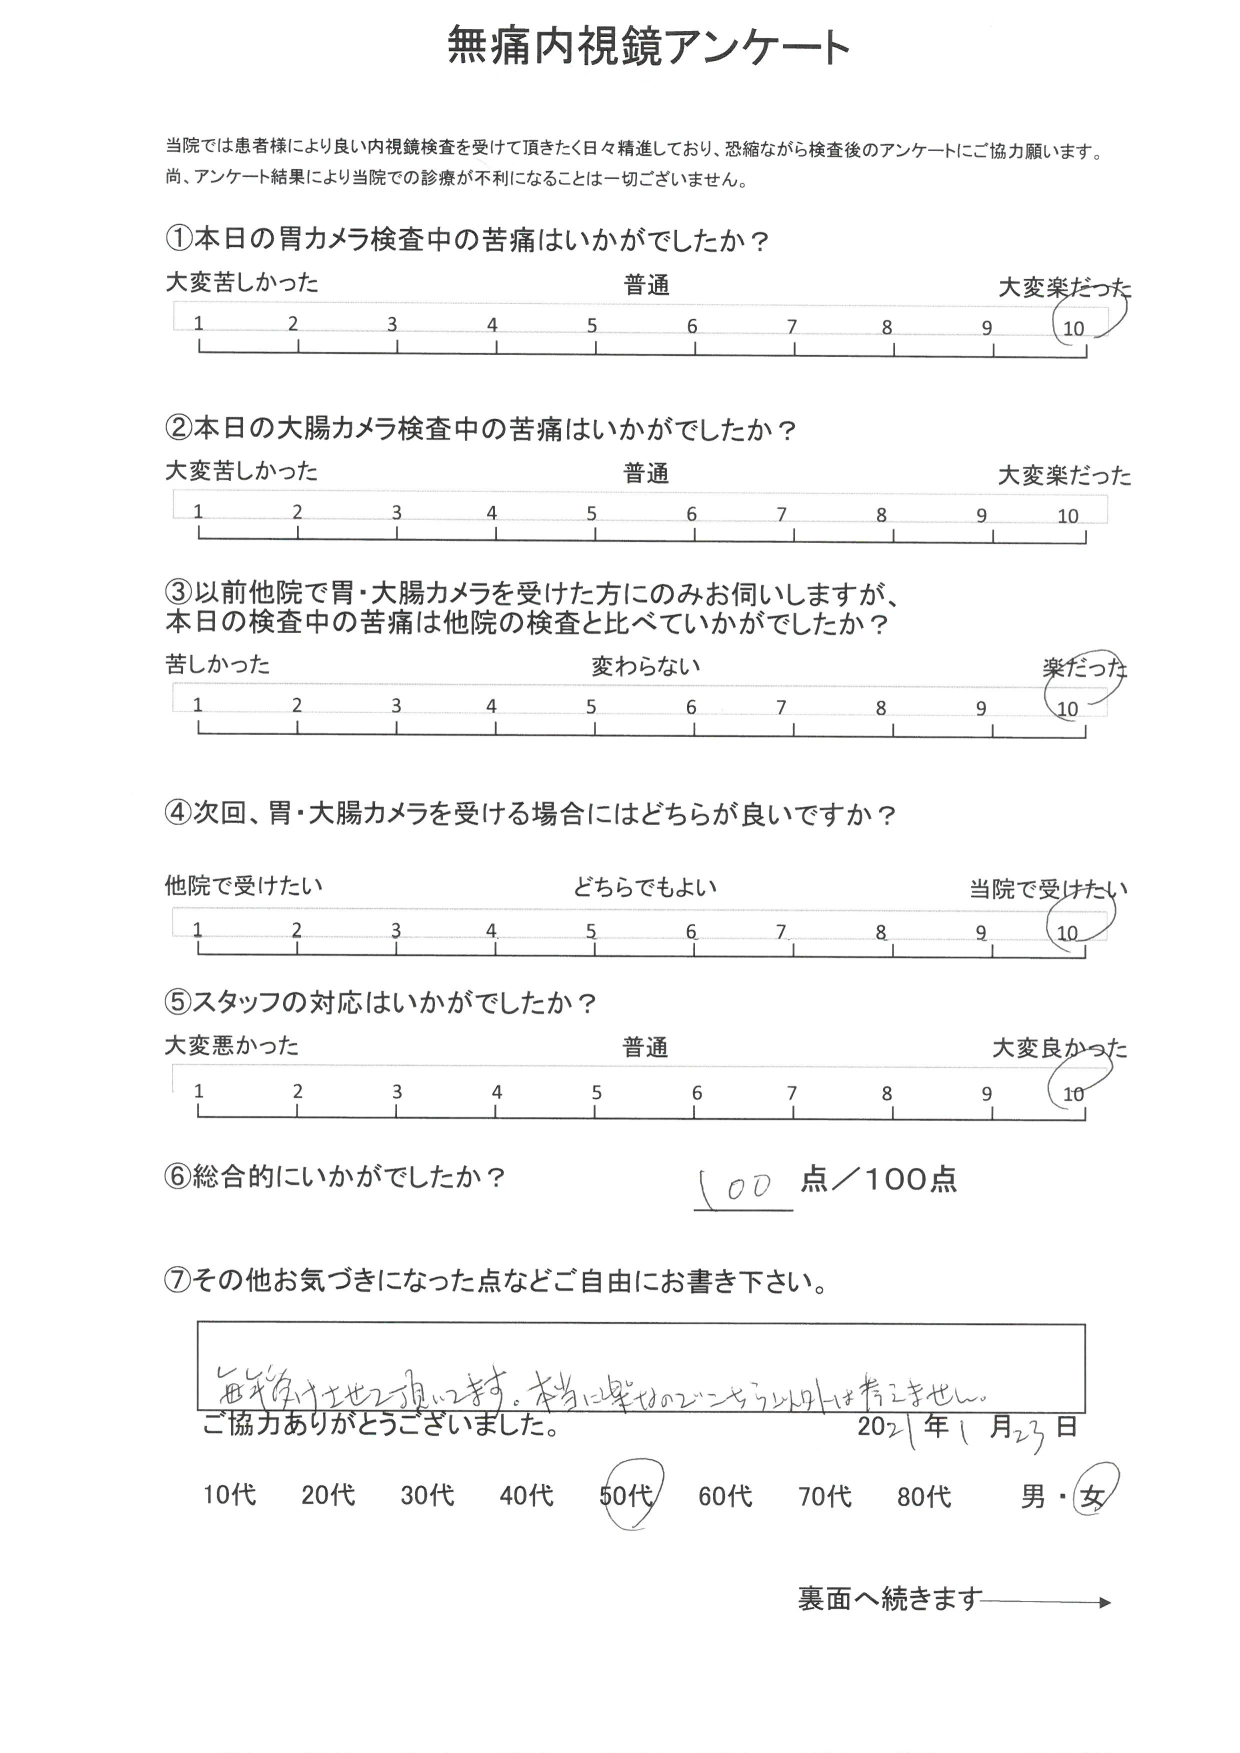 無痛内視鏡アンケート
当院では患者様により良い内視鏡検査を受けて頂きたく日々精進しており、恐縮ながら検査後のアンケートにご協力願います。
尚、アンケート結果により当院での診療が不利になることは一切ございません。
①本日の胃カメラ検査中の苦痛はいかがでしたか？
大変苦しかった 普通 大変楽だった
1 2 3 4 5 6 7 8 9 10
②本日の大腸カメラ検査中の苦痛はいかがでしたか？
大変苦しかった 普通 大変楽だった
1 2 3 4 5 6 7 8 9 10
③以前他院で胃・大腸カメラを受けた方にのみお伺いしますが、
本日の検査中の苦痛は他院の検査と比べていかがでしたか？
苦しかった 変わらない 楽だった
1 2 3 4 5 6 7 8 9 10
④次回、胃・大腸カメラを受ける場合にはどちらが良いですか？
他院で受けたい どちらでもよい 当院で受けたい
1 2 3 4 5 6 7 8 9 10
⑤スタッフの対応はいかがでしたか？
大変悪かった 普通 大変良かった
1 2 3 4 5 6 7 8 9 10
⑥総合的にいかがでしたか？ 100 点／100点
⑦その他お気づきになった点などご自由にお書き下さい。
毎年受けさせて頂いてます。本当に楽なのでこちら以外は考えません。
ご協力ありがとうございました。 2021年1月23日
10代 20代 30代 40代 50代 60代 70代 80代 男・女
裏面へ続きます